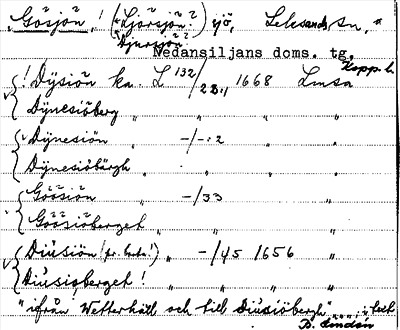 "Gösjön"! (Ljorsjön? sjö, Leksands sn,
Djursjön?
Nedansiljans doms. tg.
Kopp. l.
! Dÿsiön ka. L 132/22 1, 1668 Lmsa
Dÿnesiöberg " " " "
Dÿnesiön " -/-:2 " "
Dÿnesiöbärgh " " " "
Göösiön -/33 " "
Göösiöberget " " " "
Diusiön (pr. bet.!) " -/45 1656 "
Diusioberget! " " " "
"ifrån Wetterhäll och till Diusiöbergh"
B. Lindén